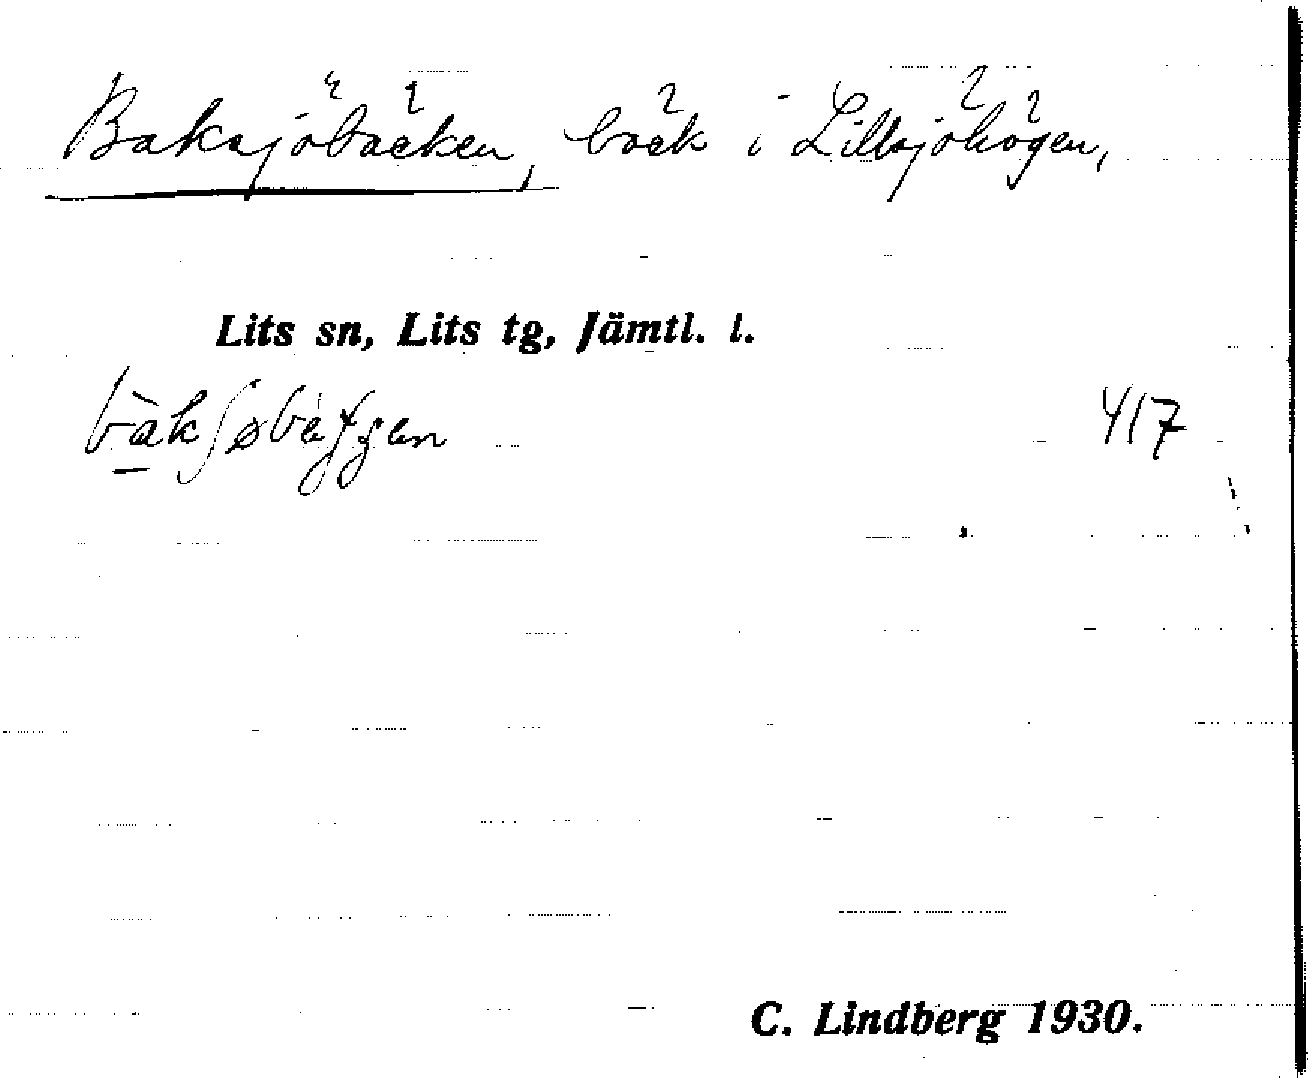 Baksjöbäcken, bäck i Lillsjöhögen,
Lits sn, Lits tg, Jämtl. l.
417
C. Lindberg 1930.